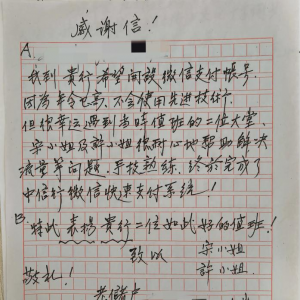 感谢信!
A.
我到貴行希望開放微信支付帳号.
因为年令已高,不会使用先进技術.
但很幸运遇到当時值班的二位大堂.
宋小姐及許小姐很耐心地幫助解决
流量等问题.手技熟練.终於完成了
中信行微信快速支付系统!
B.特此表揚貴行二位如此好的值班!
致以 宋小姐
敬礼! 許小姐.
老儲户